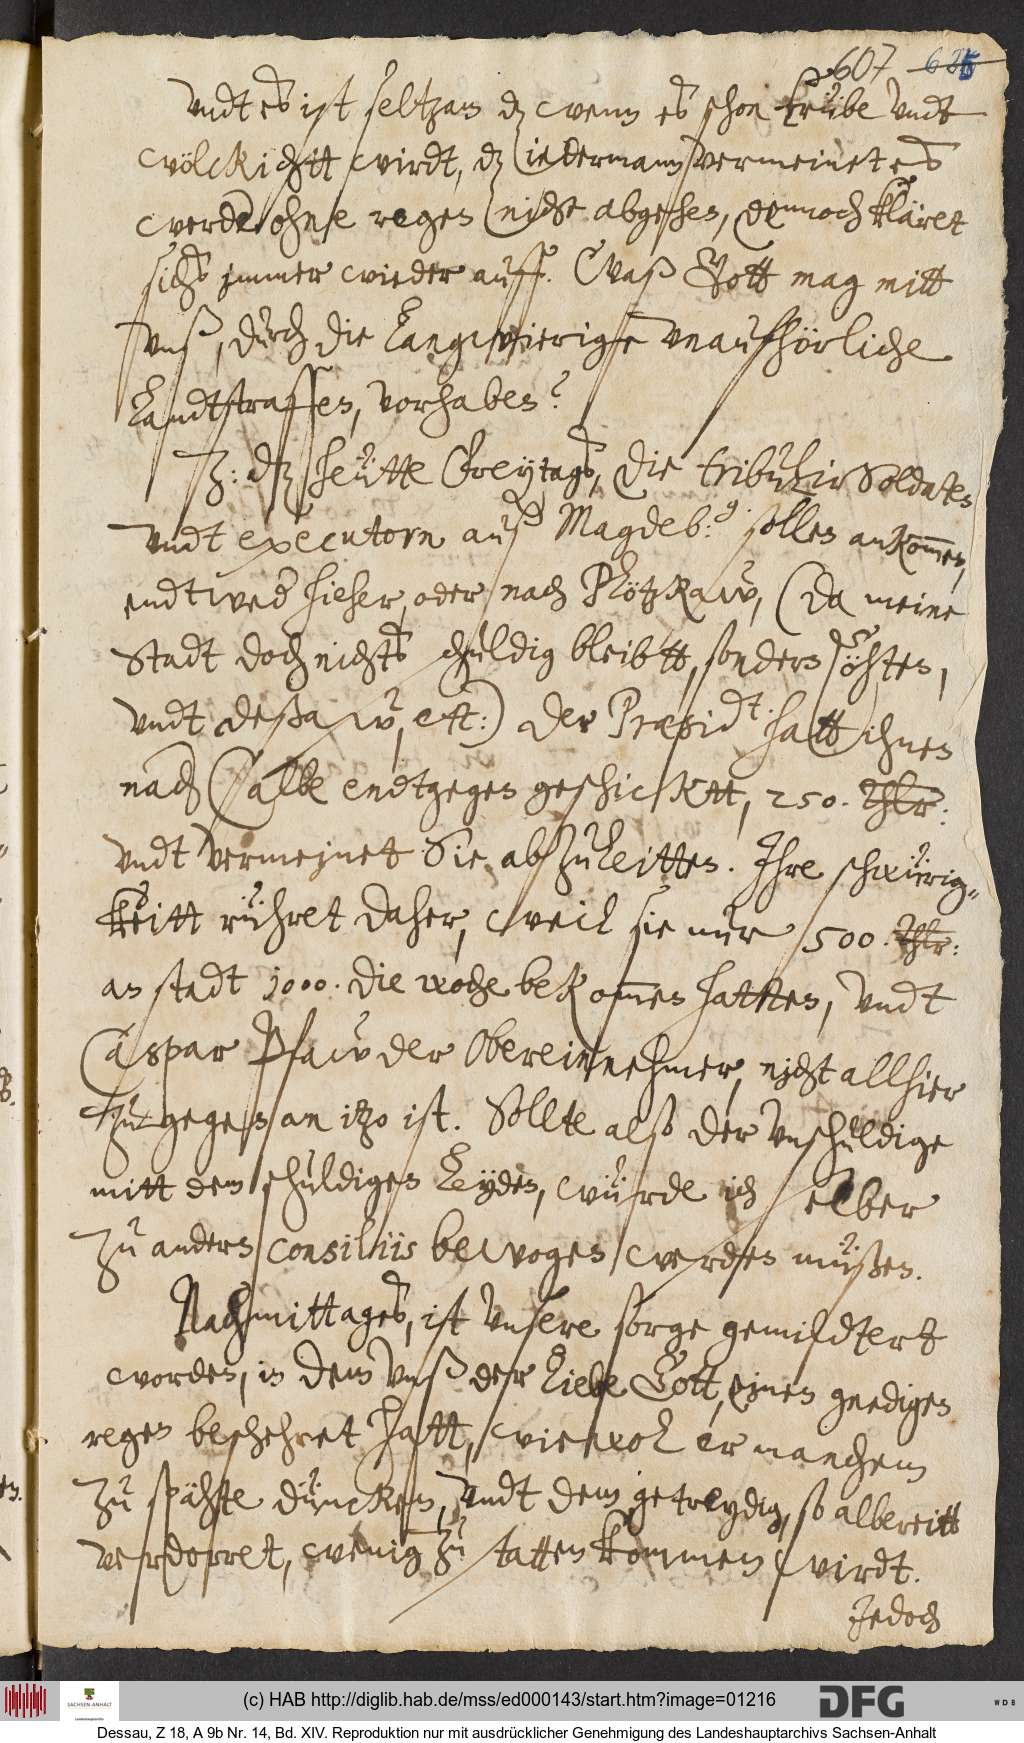 607 625
undt es ist seltzam dz wenn es schon trübe undt
wölckichtt wirdt, dz iedermann vermeinet es
werde ohne regen nicht abgehen, dennoch kläret
sichs immer wieder auff. Waß Gott mag mitt
unß, durch die langwierige unaufhörliche
Landtstraffen, vorhaben?
Z: dz heütte Freytags, die tribuhir Soldaten
undt executorn auß Magdeb:g. sollen ankommen,
endtwed hieher, oder nach Plötzkaw, (da meine
Stadt doch nichts schuldig bleibtt, sondern Cöhten,
undt deßaw, ett:) der Præsidt. hatt ihnen
nach Calbe endtgegen geschicktt, 250. Thlr:
undt vermeynet Sie abzuleitten. Ihre schwürig-
keitt rühret daher, weil sie nur 500. Thlr:
an stadt 1000. die woche bekommen hatten, undt
Caspar Pfaw der Obereinnehmer, nicht allhier
zu gegen an itzo ist. Sollte also der unschuldige
mitt dem schuldigen Leyden, würde ich selber
zu andern consiliis bewogen werden müßen.
Nachmittages, ist unsere sorge gemildtert
worden, in dem unß der liebe Gott, einen gnedigen
regen beschehret hatt, wiewol er manchem
zu spähte düncken, undt dem getreydig, so albereitt
verdorret, wenig zu statten kommen wirdt.
Jedoch
(c) HAB http://diglib.hab.de/mss/ed000143/start.htm?image=01216
SACHSEN-ANHALT
DFG
WDB
Dessau, Z 18, A 9b Nr. 14, Bd. XIV. Reproduktion nur mit ausdrücklicher Genehmigung des Landeshauptarchivs Sachsen-Anhalt